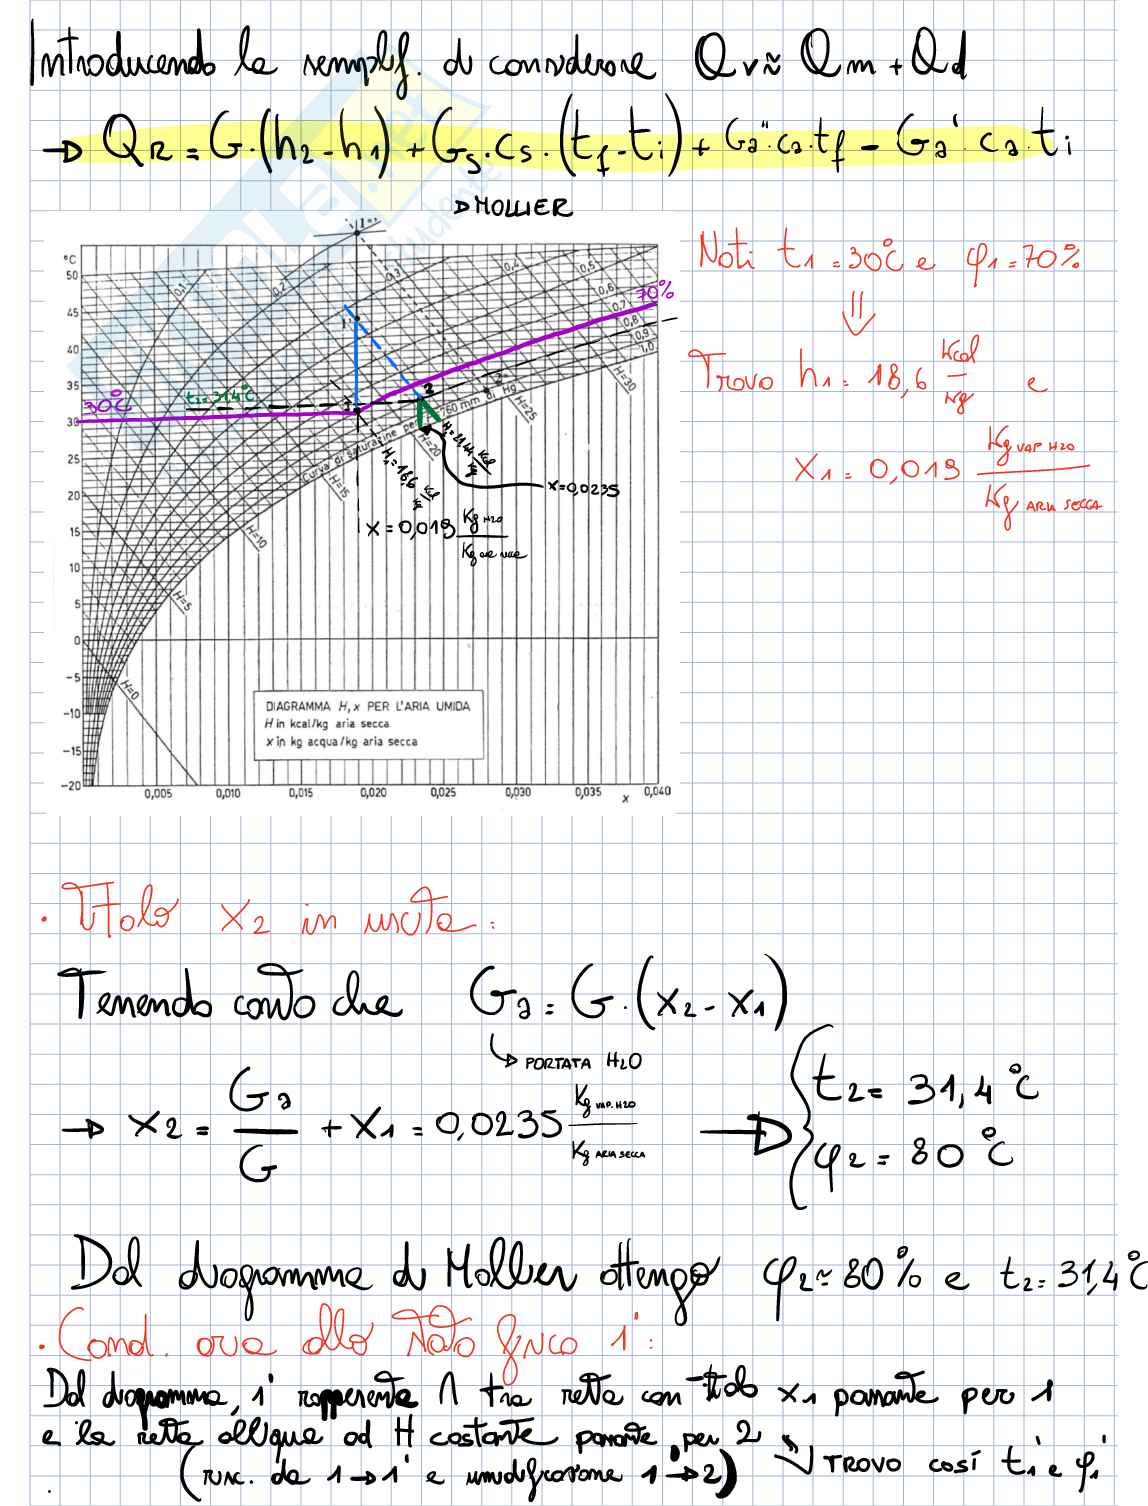 Introducendo la semplif. di considerare Qv≈ Qm + Qd
→ QR = G·(h2-h1)+Gs·cs·(tf-ti)+ Ga''·ca·tf - Ga'·ca·ti
→ MOLLIER
Noti t1=30°C e φ1=70%
⇓
Trovo h1= 18,6 Kcal/Kg e
x1= 0,019 Kg VAP H2O / Kg ARIA SECCA
°C
50
45
40
35
30
25
20
15
10
5
0
-5
-10
-15
-20
0,1
0,2
0,3
0,4
0,5
0,6
0,7
0,8
0,9
1,0
70%
30°C
t2=31,4°C
1'
2
Curva di saturazione per 760 mm di Hg
H=30
H=25
H=20
H=15
H=10
H=5
H=0
H1=18,6 Kcal/Kg
H2=21,44 Kcal/Kg
x=0,0235
X=0,019 Kg H2O / Kg
DIAGRAMMA H, x PER L'ARIA UMIDA
H in kcal/kg aria secca
x in kg acqua/kg aria secca
0,005 0,010 0,015 0,020 0,025 0,030 0,035 x 0,040
· Titolo x2 in uscita:
Tenendo conto che Ga = G·(x2-x1)
↳ PORTATA H2O
→ x2 = Ga/G + x1 = 0,0235 Kg VAP. H2O / Kg ARIA SECCA → { t2= 31,4°C
φ2= 80°C
Dal diagramma di Mollier ottengo φ2≈80% e t2=31,4°C
· Cond. aria allo stato fisico 1':
Dal diagramma, 1' rappresenta ∩ tra retta con titolo x1 passante per 1
e la retta obliqua ad H costante passante per 2
(risc. da 1→1' e umidificazione 1'→2) ⇒ TROVO così t1' e φ1'